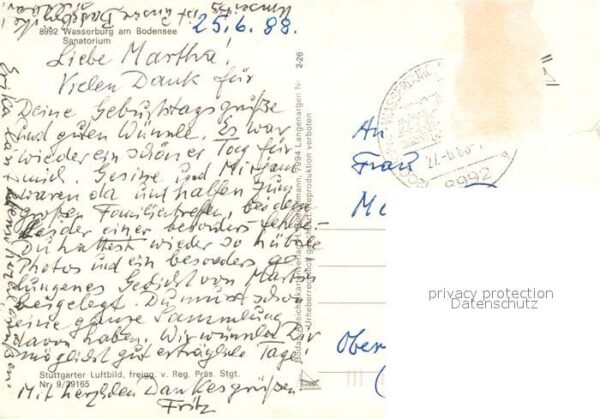 25.6.88.
8992 Wasserburg am Bodensee
Sanatorium
Liebe Martha!
Vielen Dank für
Deine Geburtstagsgrüße
und guten Wünsche. Es war
wieder ein schöner Tag für
mich. Gesine und Mirjam
waren da und halfen zum
großen Familientreffen, bei dem
leider einer besonders fehlte.
Du hattest wieder so hübsche
Photos und ein besonders ge
lungenes Gedicht von Martin
beigelegt. Du musst schon
eine ganze Sammlung
davon haben. Wir wünschen Dir
möglichst gut erträgliche Tage!
Stuttgarter Luftbild, freigg. v. Reg. Präs. Stgt.
Nr. 9/39165
Mit herzlichen Dankesgrüßen
Fritz
Erika lässt herzl. grüßen.
2-26
7994 Langenargen
Urheberrechtlich geschützt Reproduktion verboten
8992
An
Frau
Ober
privacy protection
Datenschutz